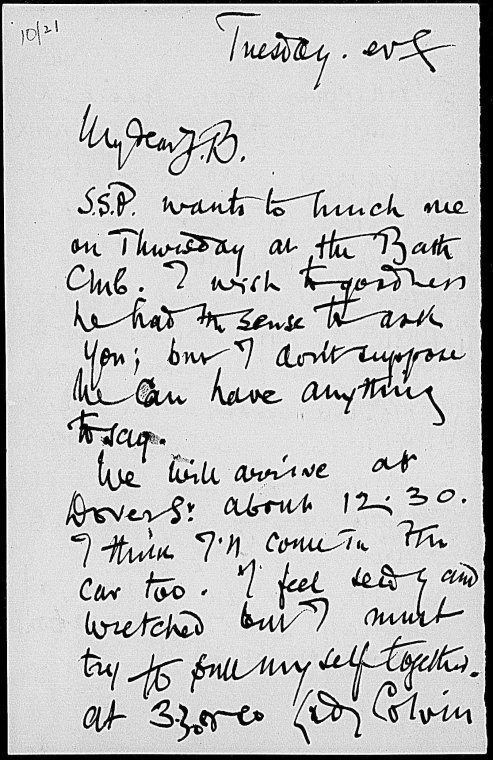 10/21
Tuesday. evg
My dear J.B.
S.S.P. wants to lunch me
on Thursday at the Bath
Club. I wish to goodness
he had the sense to ask
you; but I don't suppose
he can have anything
to say.
We will arrive at
Dover St. about 12.30.
I think I'll come in the
car too. I feel seedy and
wretched but I must
try to pull myself together.
at 3.30 or so Lady Colvin